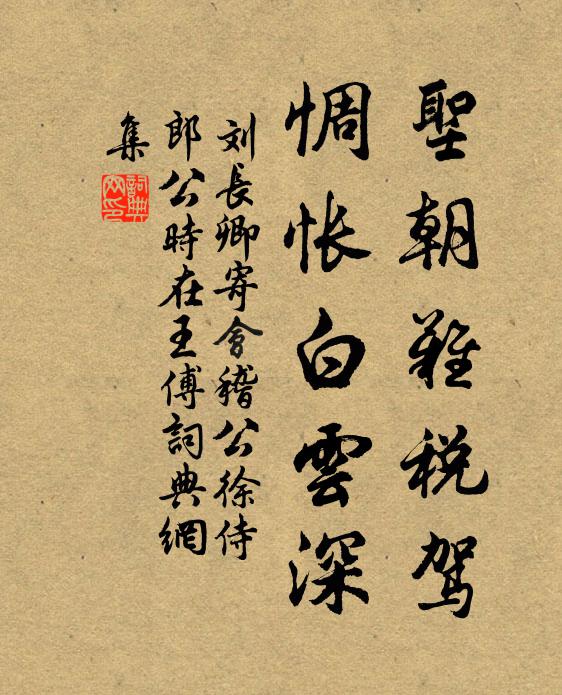 聖朝難税駕
惆怅白雲深
刘長卿寄會稽公徐侍
郎公時在王傅詞典網
集
詞典
网印